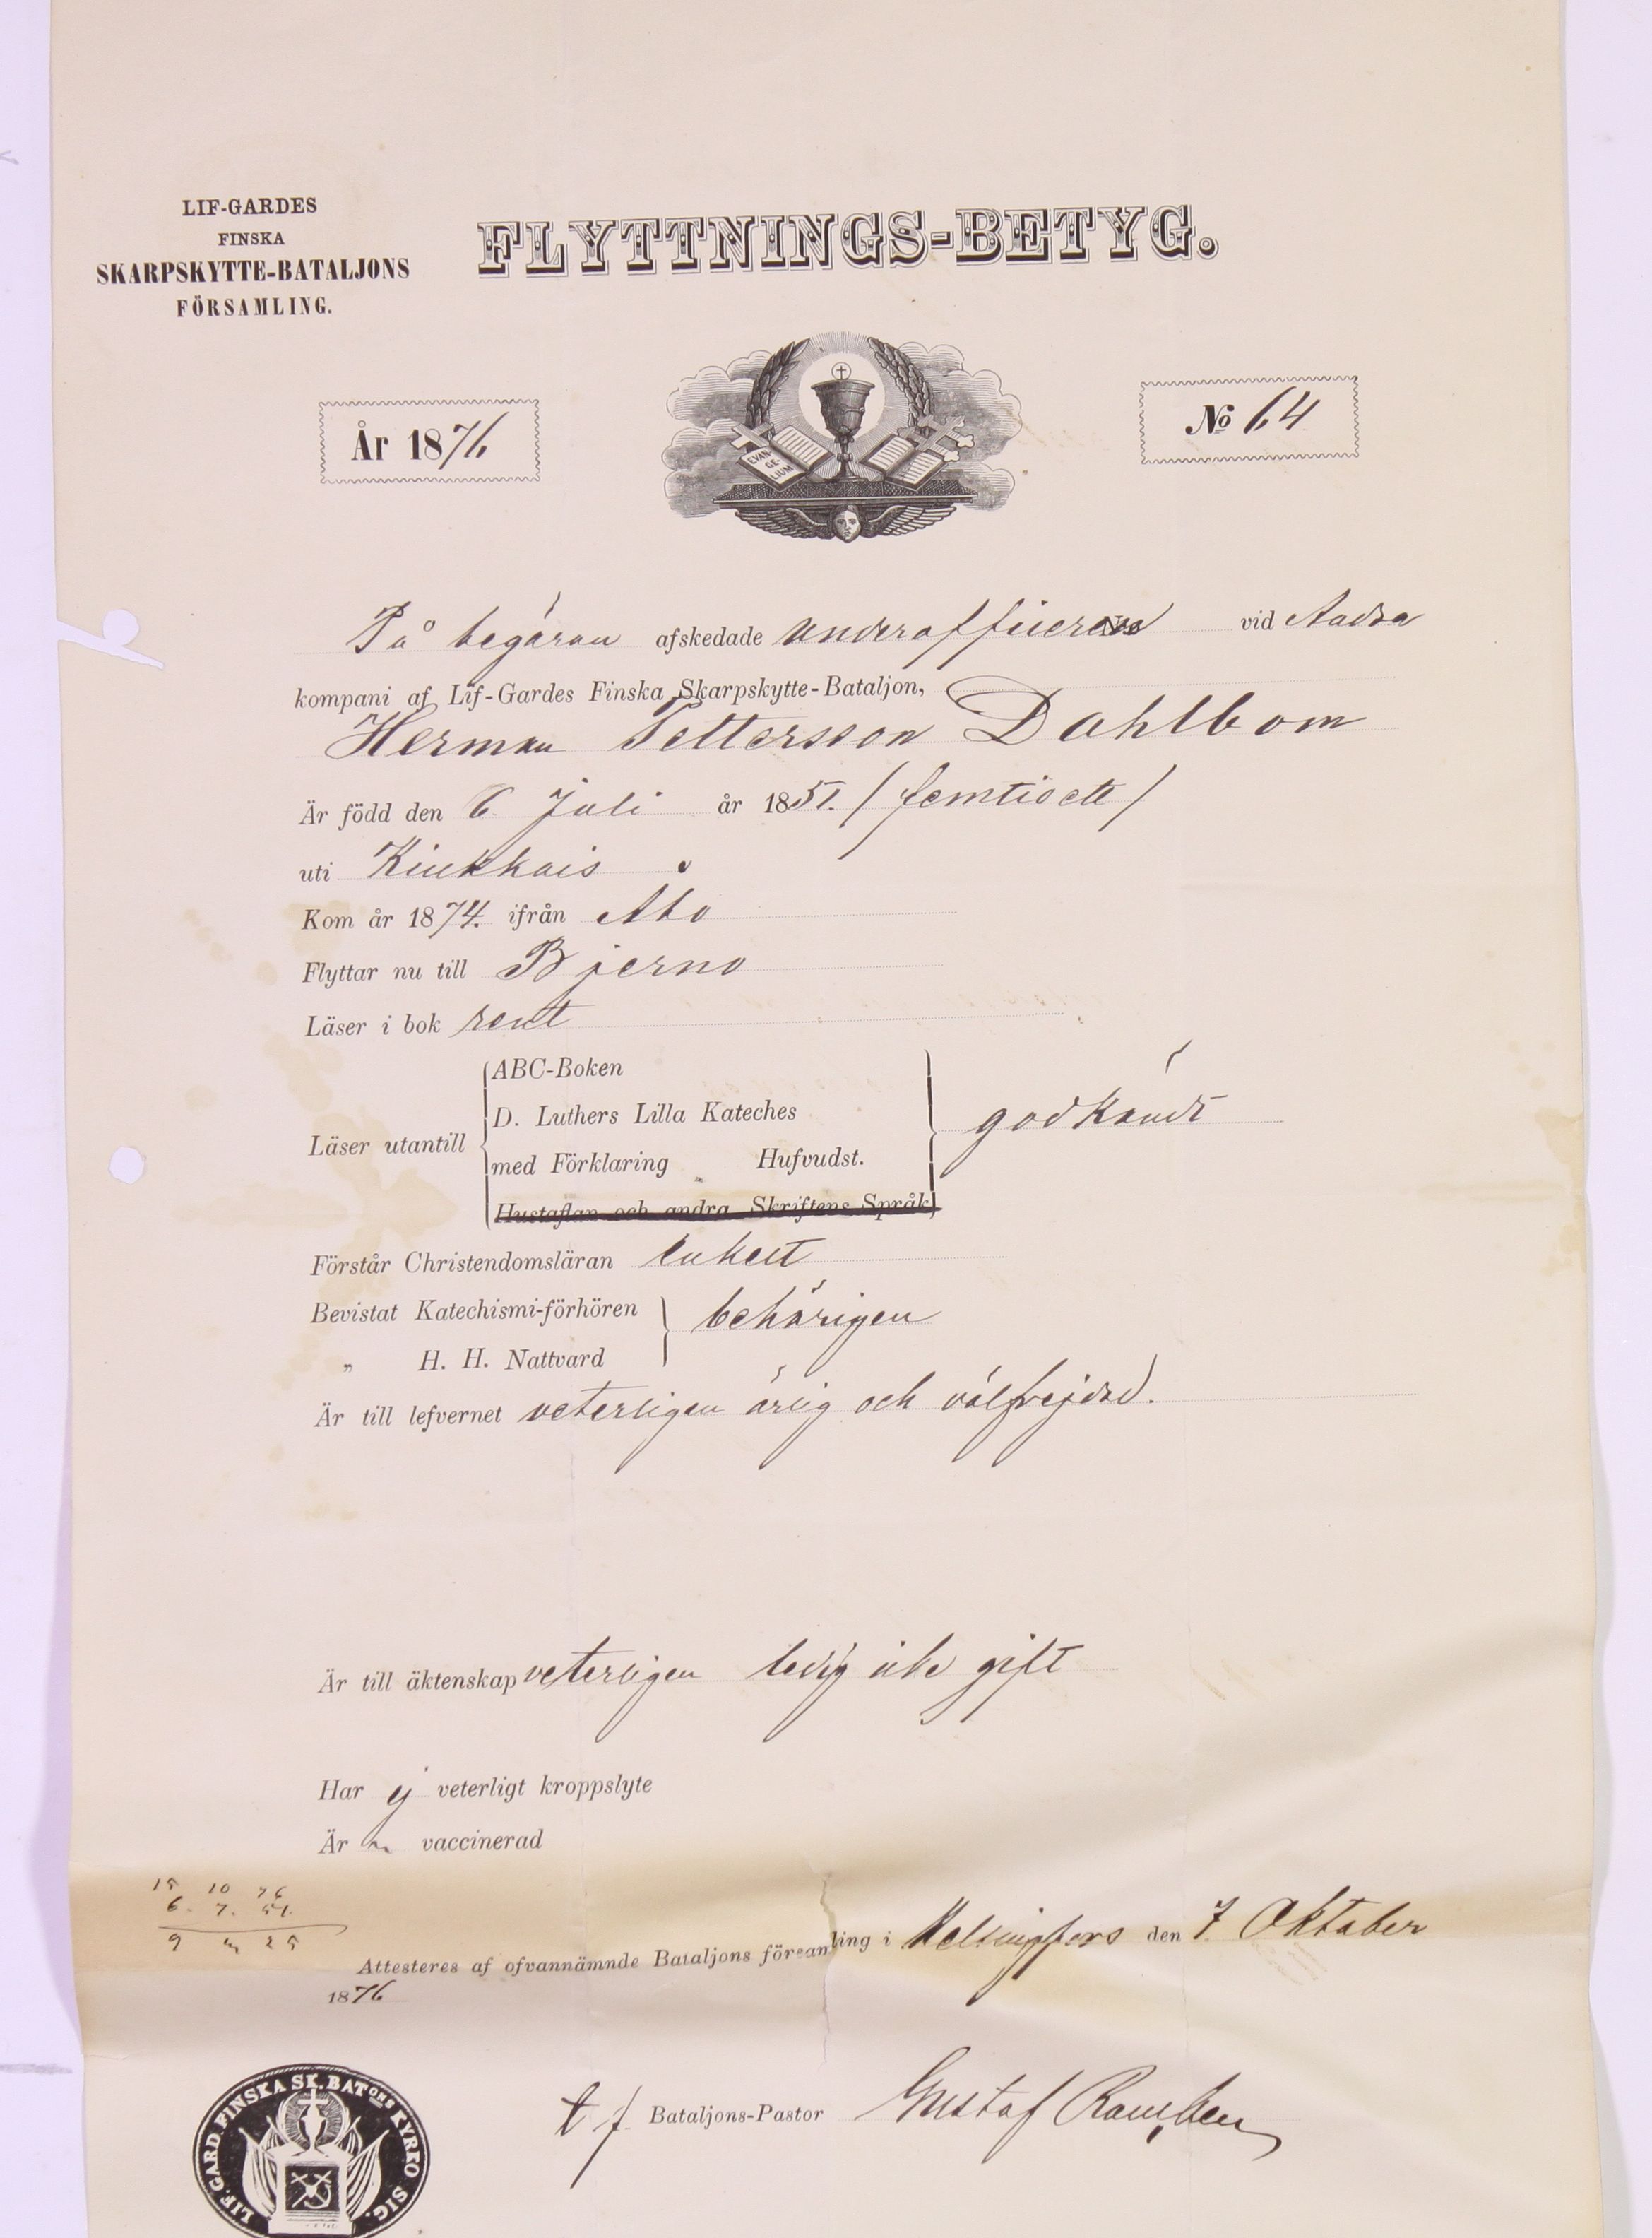 LIF-GARDES
FINSKA
SKARPSKYTTE-BATALJONS
FÖRSAMLING.
FLYTTNINGS-BETYG.
År 1876
No 64
EVAN-
GE-
LIUM
På begäran afskedade underofficeren vid Andra
kompani af Lif-Gardes Finska Skarpskytte-Bataljon,
Herman Pettersson Dahlbom
Är född den 6 Juli år 1851. / femtioett /
uti Kiukkais
Kom år 1874. ifrån Åbo
Flyttar nu till Bjerno
Läser i bok rent
ABC-Boken
D. Luthers Lilla Kateches
Läser utantill godkändt
med Förklaring Hufvudst.
Hustaflan och andra Skriftens Språk
Förstår Christendomsläran enkelt
Bevistat Katechismi-förhören behörigen
„ H. H. Nattvard
Är till lefvernet veterligen ärlig och välfrejdad.
Är till äktenskap veterligen ledig icke gift
Har ej veterligt kroppslyte
Är vaccinerad
15 10 76
6. 7. 51.
9 3 25
Attesteres af ofvannämnde Bataljons församling i Helsingfors den 7 Oktober
1876
t f Bataljons-Pastor Gustaf
LIF. GARD. FINSKA SK. BATONS KYRKO SIG.